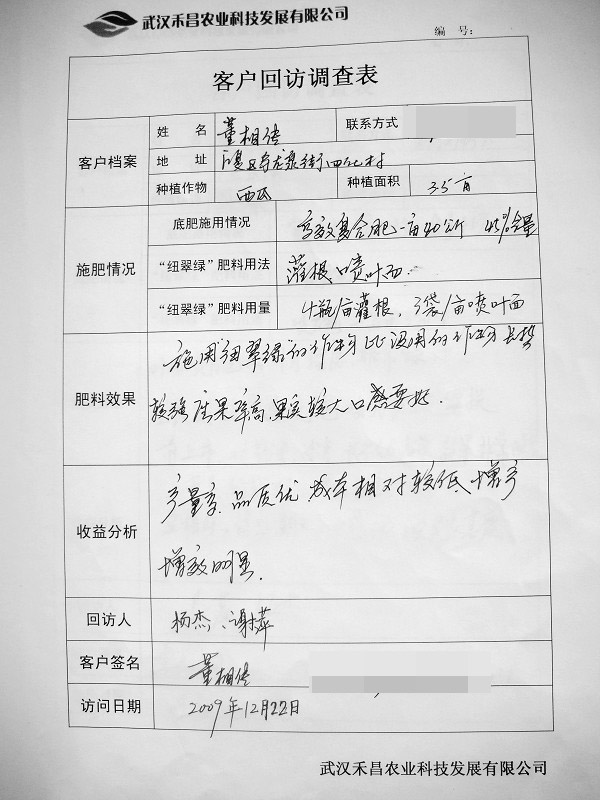 武汉禾昌农业科技发展有限公司
编 号:
客户回访调查表
客户档案
姓 名 董相传 联系方式
地 址 江夏区乌龙泉街四化村
种植作物 西瓜 种植面积 35亩
施肥情况
底肥施用情况 高效复合肥一亩40公斤 45%含量
“纽翠绿”肥料用法 灌根、喷叶面.
“纽翠绿”肥料用量 4瓶/亩灌根, 3袋/亩喷叶面
肥料效果
施用纽翠绿的作物比没用的作物长势
较强 座果率高.果实较大口感要好.
收益分析
产量高.品质优 成本相对较低 增产
增效明显.
回访人 杨杰、谢萍
客户签名 董相传
访问日期 2009年12月22日
武汉禾昌农业科技发展有限公司